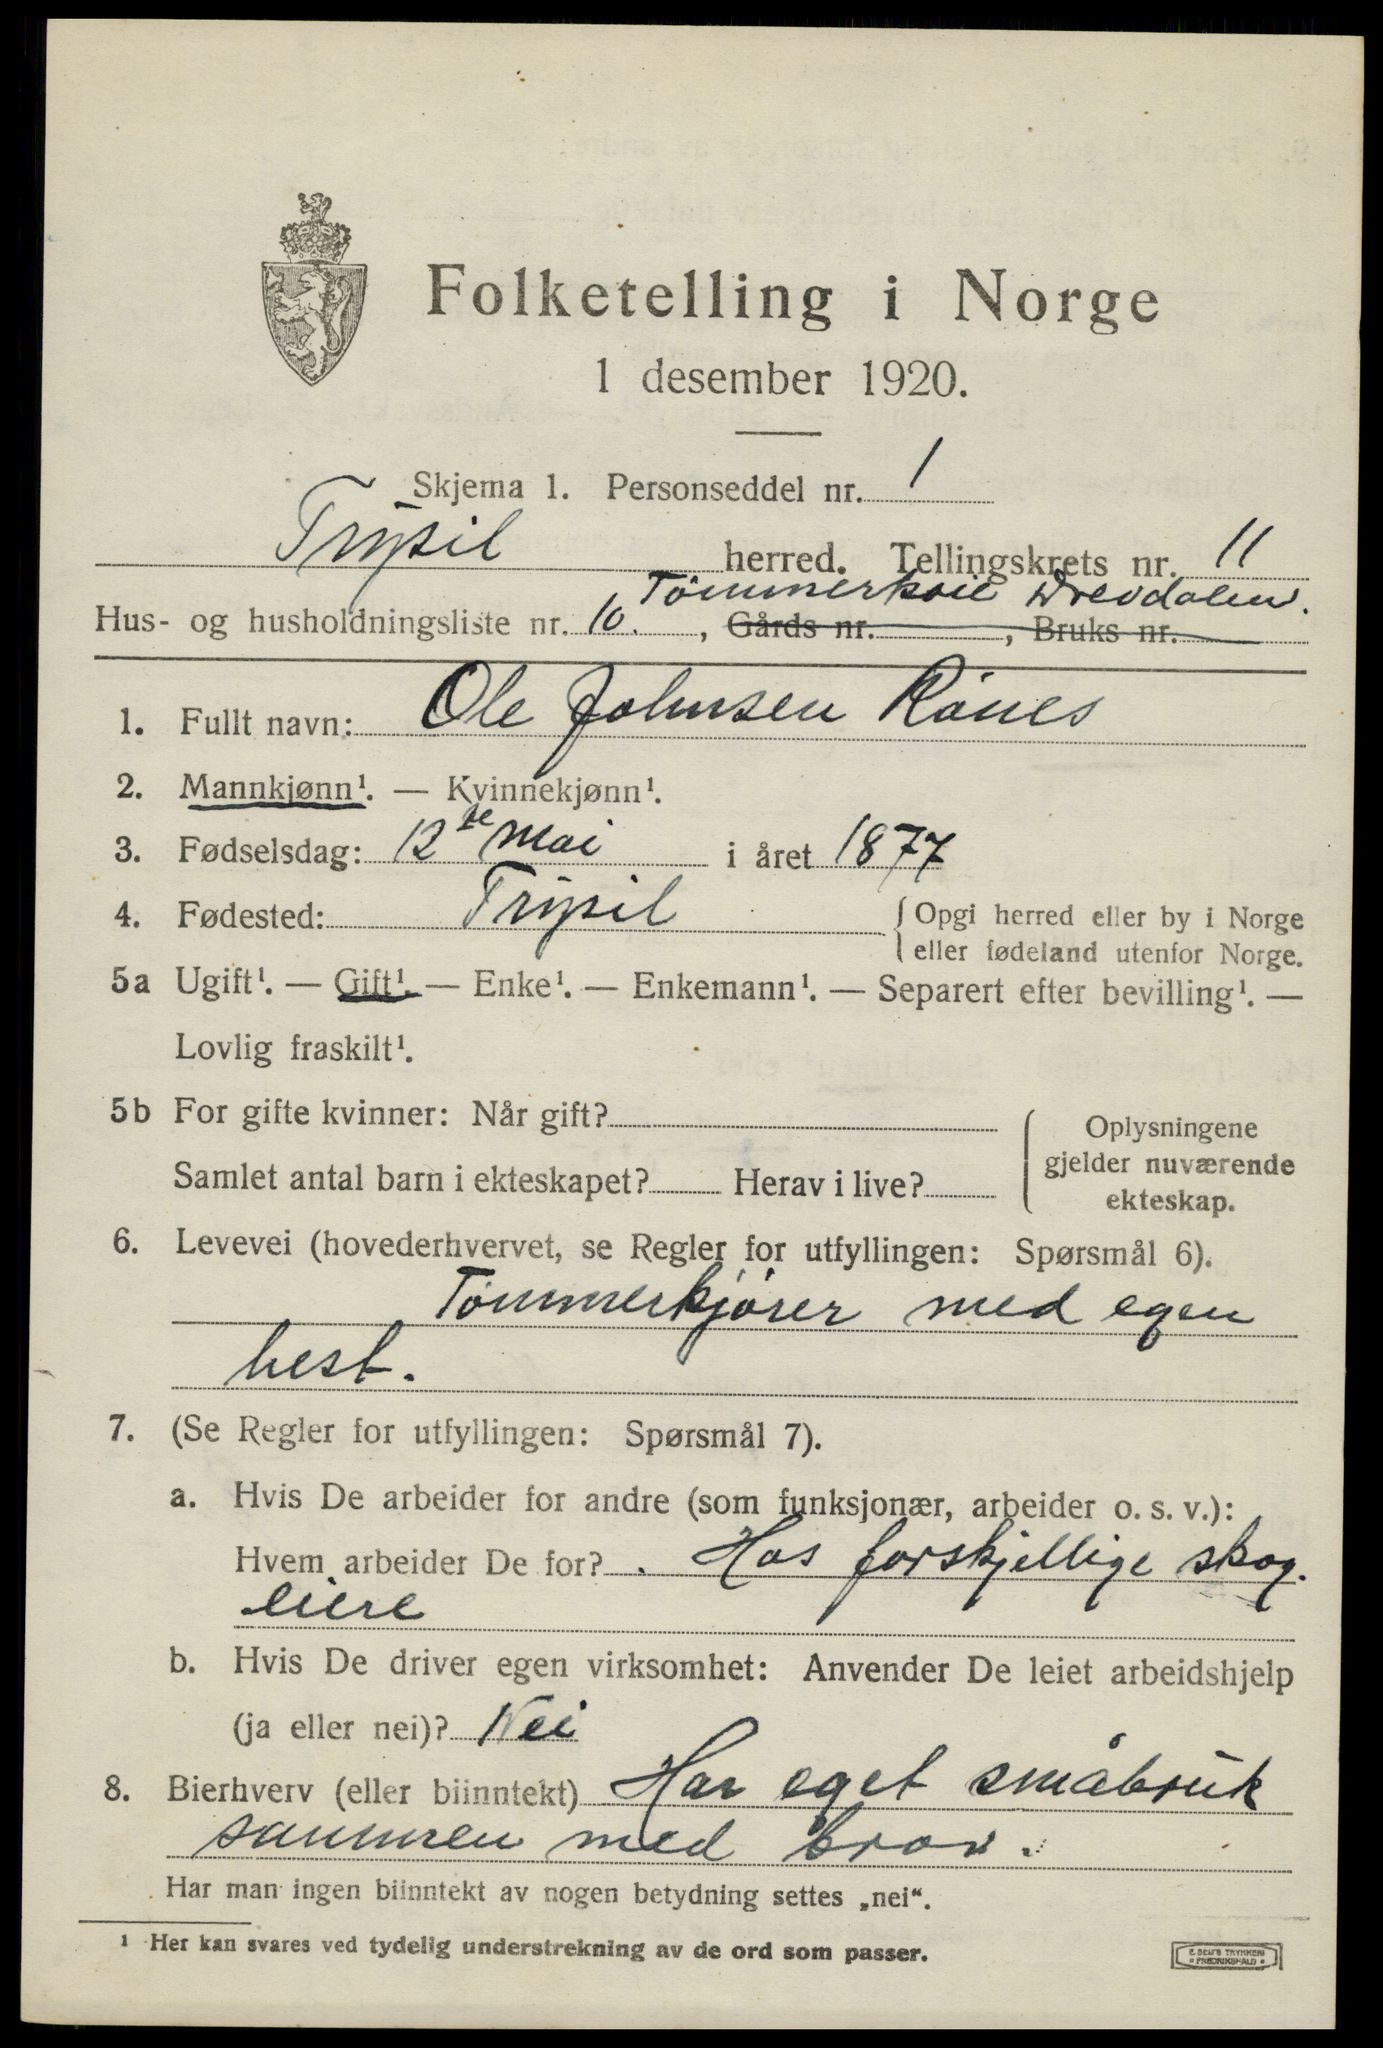 Folketelling i Norge
1 desember 1920.
Skjema 1. Personseddel nr. 1
Trysil herred. Tellingskrets nr. 11
Tømmerkoie Drevdalen.
Hus- og husholdningsliste nr. 10. , Gårds nr. , Bruks nr.
1. Fullt navn: Ole Johnsen Rønes
2. Mannkjønn¹. — Kvinnekjønn¹.
3. Fødselsdag: 12 te mai i året 1877
4. Fødested: Trysil { Opgi herred eller by i Norge
eller fødeland utenfor Norge.
5a Ugift¹. — Gift¹. — Enke¹. — Enkemann¹. — Separert efter bevilling¹. —
Lovlig fraskilt¹.
5b For gifte kvinner: Når gift?
Samlet antal barn i ekteskapet? Herav i live?
Oplysningene
gjelder nuværende
ekteskap.
6. Levevei (hovederhvervet, se Regler for utfyllingen: Spørsmål 6).
Tømmerkjører med egen
hest.
7. (Se Regler for utfyllingen: Spørsmål 7).
a. Hvis De arbeider for andre (som funksjonær, arbeider o. s. v.):
Hvem arbeider De for? . Hos forskjellige skog.
eiere
b. Hvis De driver egen virksomhet: Anvender De leiet arbeidshjelp
(ja eller nei)? Nei
8. Bierhverv (eller biinntekt) Har eget småbruk
sammen med bror.
Har man ingen biinntekt av nogen betydning settes „nei“.
¹ Her kan svares ved tydelig understrekning av de ord som passer.
E. SEM'S TRYKKERI
• FREDRIKSHALD •